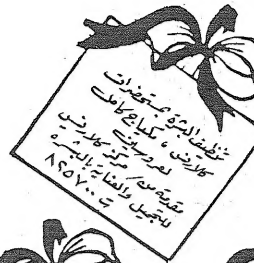 تنظيف البشرة بمستحضرات
كلارنس ، مكياج كامل
لعروستان
مقدمة من مركز كلارنس
للتجميل والعناية بالبشرة
ت ٨٢٥٧٠٠